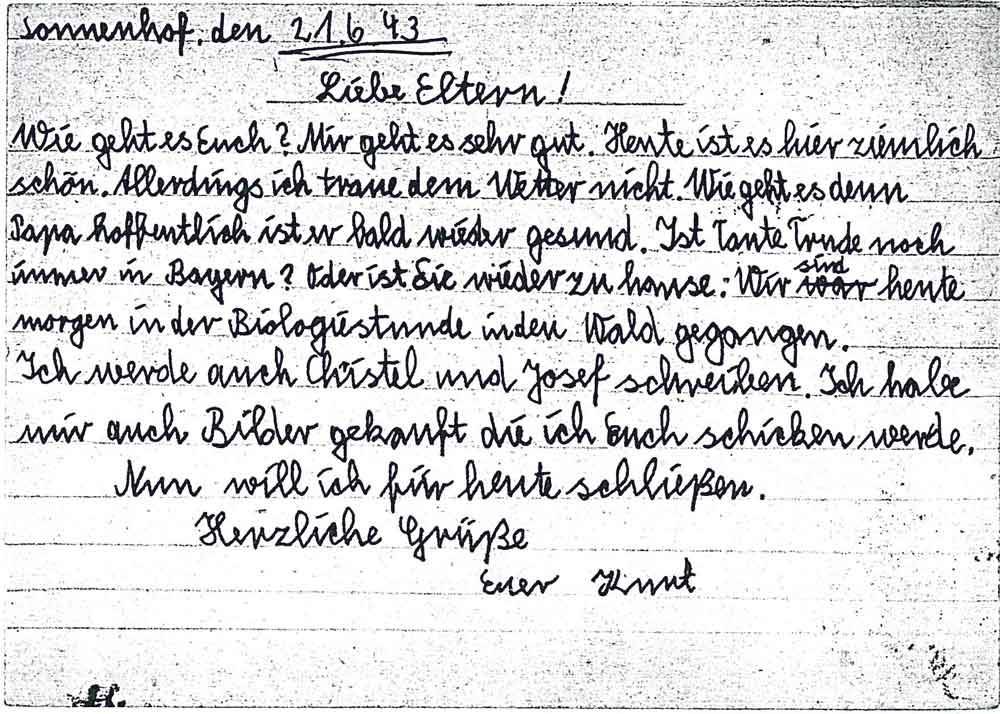 Sonnenhof, den 21.6 43
Liebe Eltern!
Wie geht es Euch? Mir geht es sehr gut. Heute ist es hier ziemlich
schön. Allerdings ich traue dem Wetter nicht. Wie geht es denn
Papa hoffentlich ist er bald wieder gesund. Ist Tante Trude noch
immer in Bayern? Oder ist Sie wieder zu hause: Wir sind heute
morgen in der Biologiestunde in den Wald gegangen.
Ich werde auch Christel und Josef schreiben. Ich habe
mir auch Bilder gekauft die ich Euch schicken werde.
Nun will ich für heute schließen.
Herzliche Grüße
Euer Knut